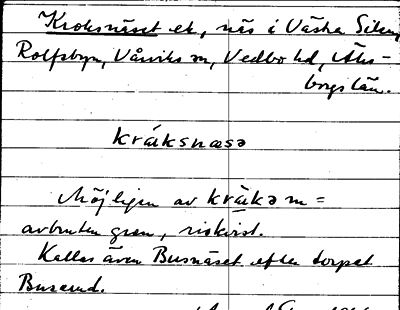 Kroksnäset ek, näs i Västra Silen,
Rolfsbyn, Vårviks sn, Vedbo hd, Älvs-
borgs län.
kråksnæsə
Möjligen av kråkə m =
avbruten gren, riskvist.
Kallas även Busnäset efter torpet
Buserud.